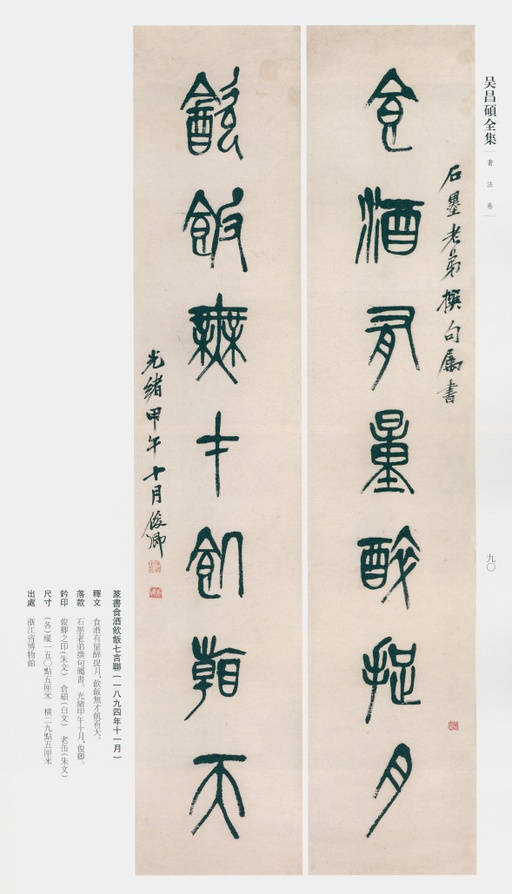 吴昌碩全集
書法卷
九〇
石墨老弟撰句属書
食酒有量醉捉月
飲飯無才飢看天
光緒甲午十月俊卿
篆書食酒飲飯七言聯(一八九四年十一月)
釋文 食酒有量醉捉月,飲飯無才飢看天。
落款 石墨老弟撰句屬書。光緒甲午十月,俊卿。
鈐印 俊卿之印(朱文) 倉碩(白文) 老缶(朱文)
尺寸 (各)縱一五〇點五厘米 橫二九點五厘米
出處 浙江省博物館